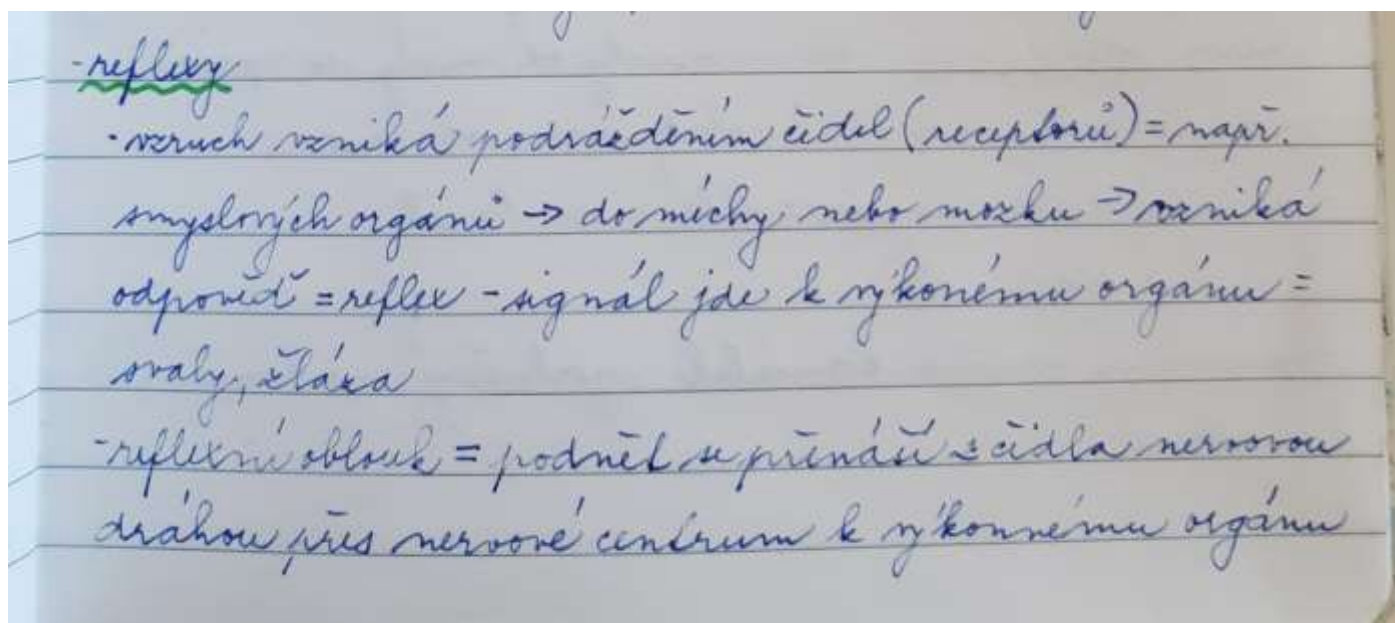 -reflexy
-vzruch vzniká podrážděním čidel (receptorů) = např.
smyslových orgánů → do míchy nebo mozku → vzniká
odpověď = reflex - signál jde k výkonému orgánu =
svaly, žláza
-reflexní oblouk = podnět se přenáší z čidla nervovou
dráhou přes nervové centrum k výkonnému orgánu